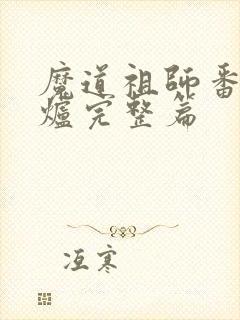 魔道祖師番
爐完整篇
冱寒